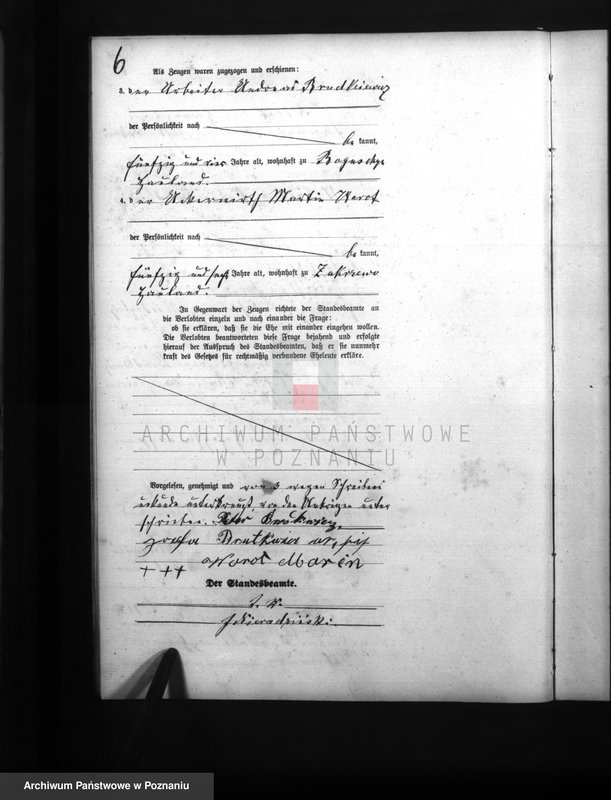 6
Als Zeugen waren zugezogen und erschienen:
3. der Arbeiter Andreas
der Persönlichkeit nach
be kannt,
fünfzig und vier Jahre alt, wohnhaft zu
Hauland.
4. der Ackerwirth Martin
der Persönlichkeit nach
be kannt,
fünfzig und sechs Jahre alt, wohnhaft zu Zakrzewo
Hauland.
In Gegenwart der Zeugen richtete der Standesbeamte an
die Verlobten einzeln und nach einander die Frage:
ob sie erklären, daß sie die Ehe mit einander eingehen wollen.
Die Verlobten beantworteten diese Frage bejahend und erfolgte
hierauf der Ausspruch des Standesbeamten, daß er sie nunmehr
kraft des Gesetzes für rechtmäßig verbundene Eheleute erkläre.
ARCHIWUM PAŃSTWOWE
W POZNANIU
Vorgelesen, genehmigt und von 3 wegen Schreibens
unkunde unterkreuzt, von den Uebrigen unter
schrieben.
+ + +
Der Standesbeamte.
Archiwum Państwowe w Poznaniu